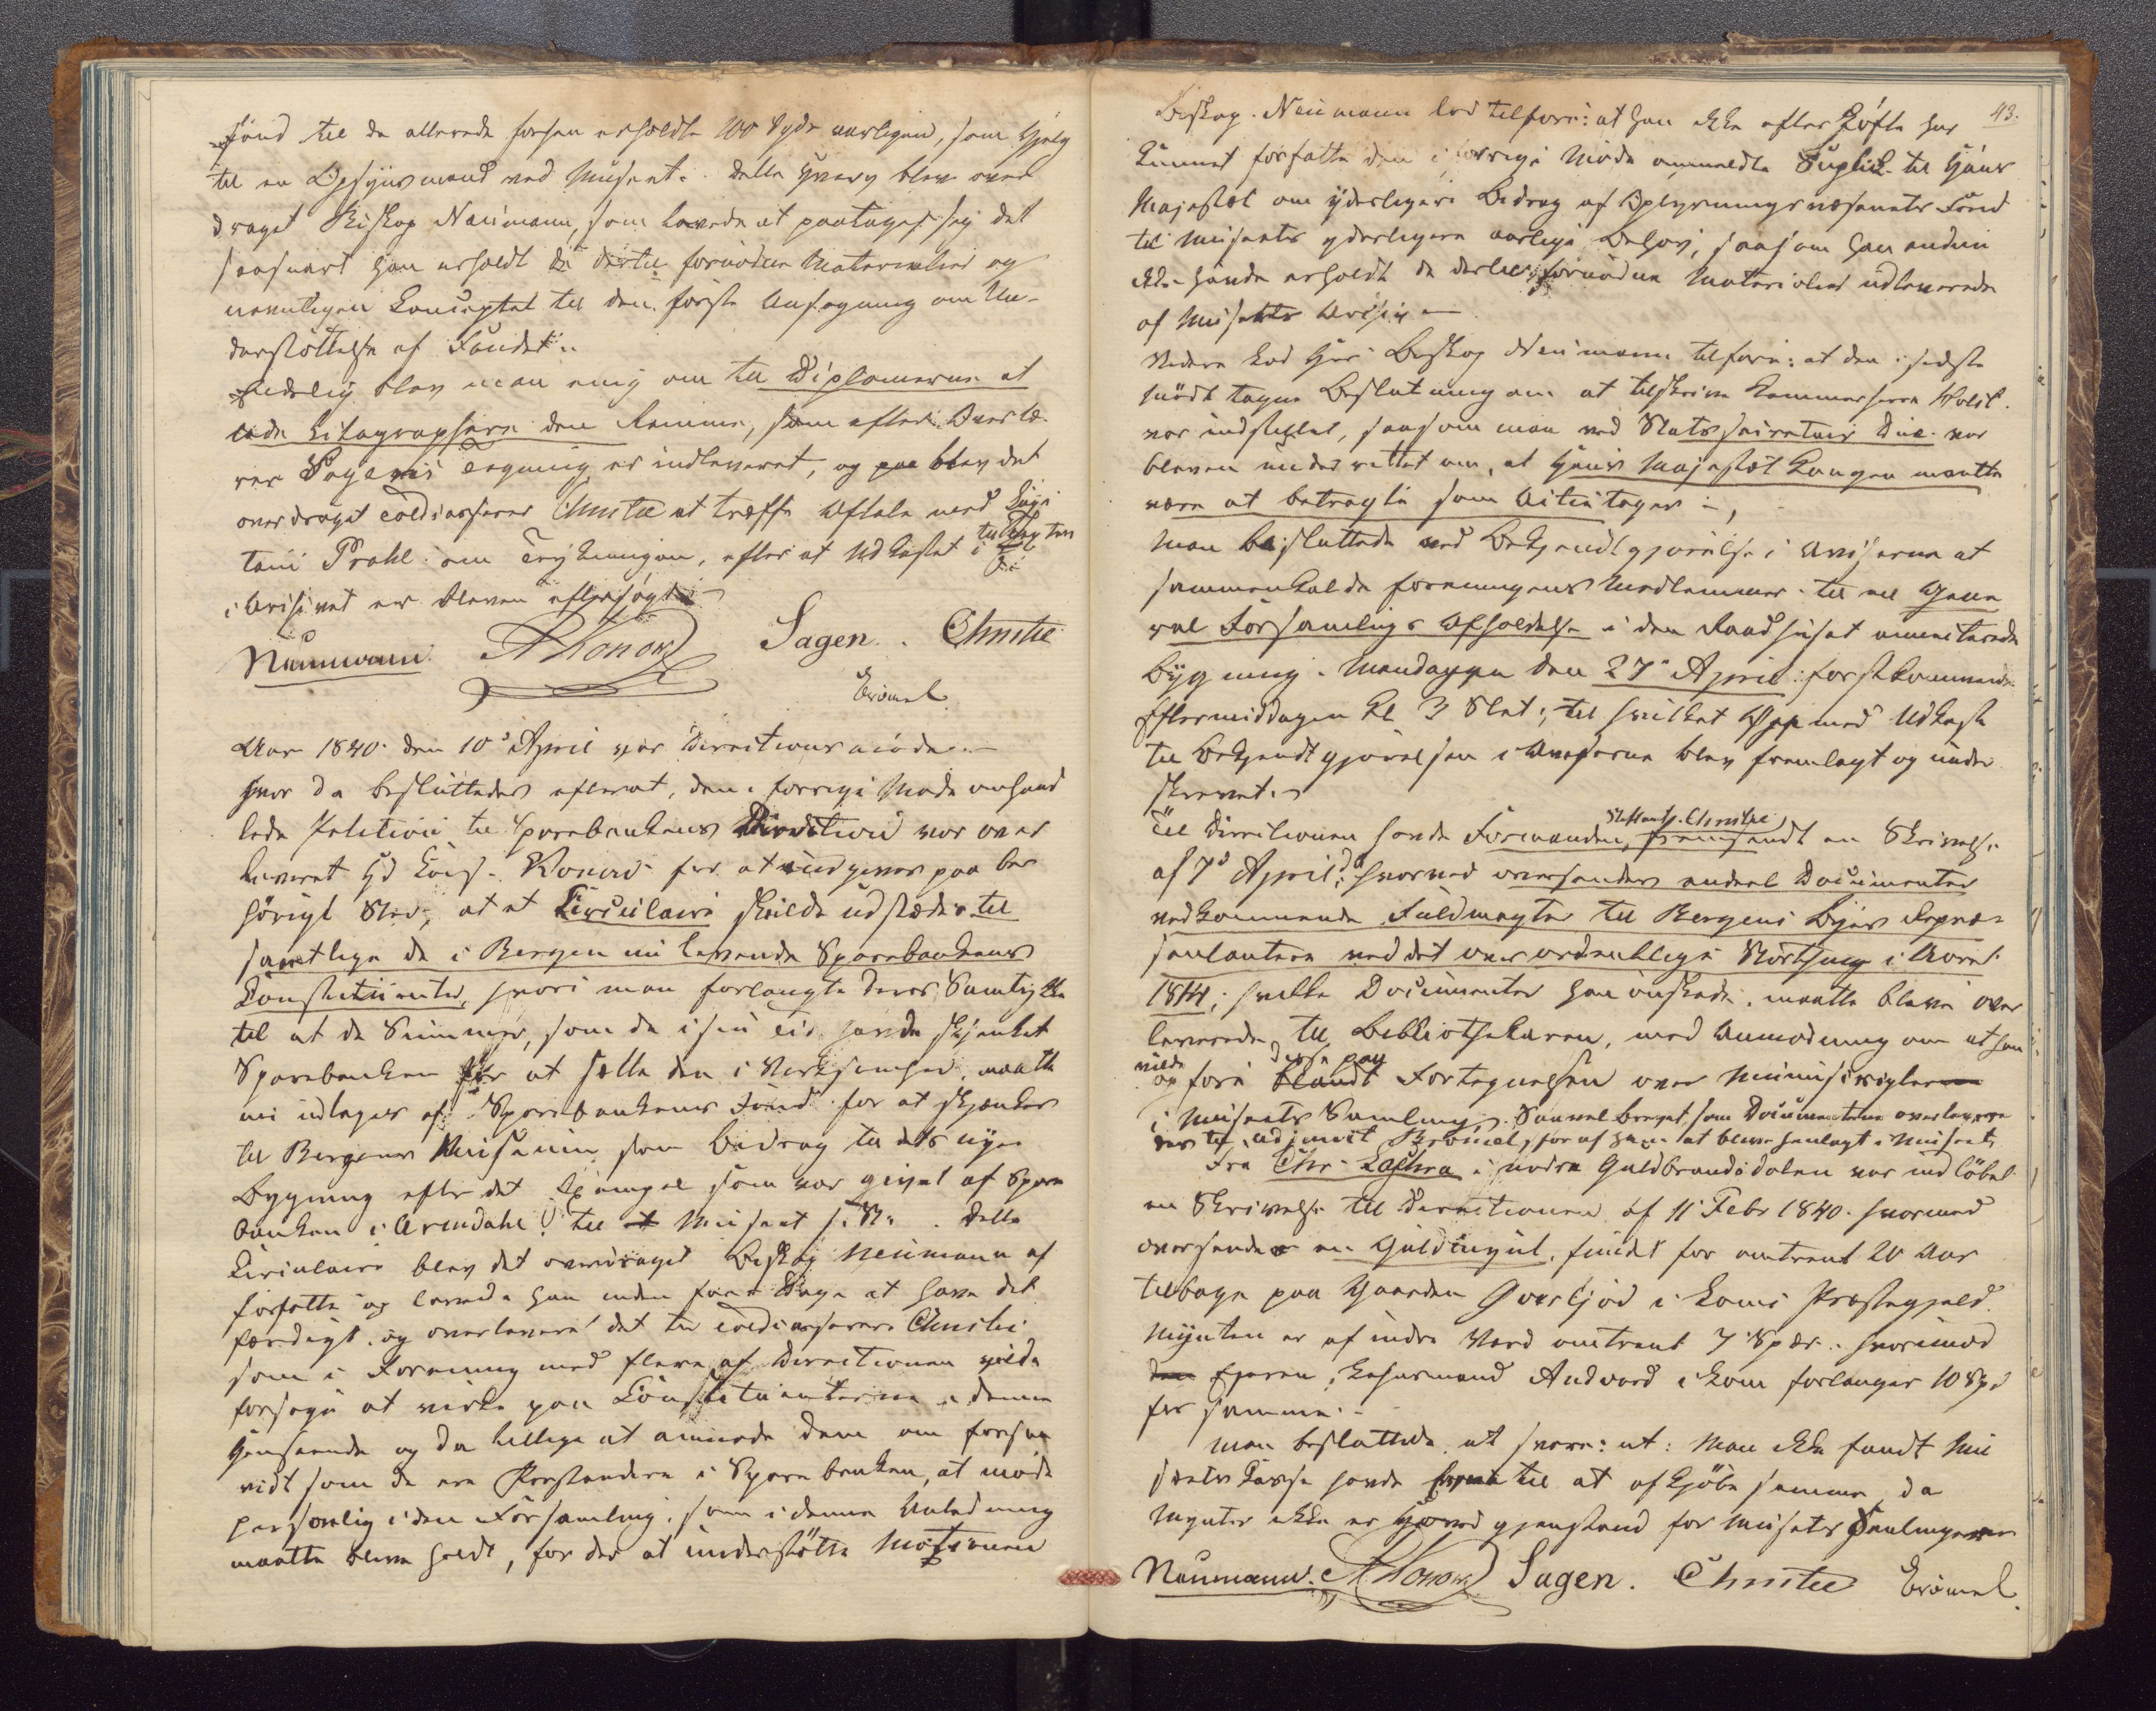 Fond til de allerede forhen erholdte 100 Spdr aarligen, som Hjelp
til en Opsynsmand ved Museet. Dette Hverv blev over
draget Biskop Neumann, som lovede at paatage sig det
saasnart han erholdt de dertil fornødne Materialier og
navnligen Conceptet til den første Ansøgning om Un-
derstøttelse af Fondet.
Endelig blev man enig om til Diplomerne at
lade Litographere den Ramme, som efter Overlæ-
rer Sagens Tegning er indleveret, og blev det
overdraget Toldinspecteur Christie at træffe Aftale med Capi
tain Prahl om Trykningen, efter at Udkastet til Texten
i Archivet er bleven eftersøgt
Neumann. A Konow Sagen. Christie
Krømel
Aar 1840 den 10de April var Directionsmøde.
hvor da besluttedes efterat, den i forrige Møde omhand
lede Petition til Sparebankens Direction var over
leveret Hr Cons. Konow for at indgives paa be
hørigt Sted, at et Circulaire skulde udstedes til
samtlige de i Bergen nu levende Sparebankens
Constituenter, hvori man forlangte deres Samtykke
til at de Summer, som de i sin Tid havde skjænket
Sparebanken for at sætte den i Virksomhed, maatte
nu udtages af Sparebankens Fond for at skjænkes
til Bergens Museum som Bidrag til dets nye
Bygning efter det Exempel som var givet af Spare
banken i Arendahl til Museet s. St. Dette
Circulaire blev det overdraget Biskop Neumann at
forfatte og lovede han inden faae Dage at have det
færdigt og overlevere det til Toldinspecteur Christie
som i Forening med flere af Directionen vilde
forsøge at virke paa Constituenterne i denne
Henseende og da tillige at anmode dem om forsaa
vidt som de ere Forstandere i Sparebanken, at møde
personlig i den Forsamling, som i denne Anledning
maatte blive holdt, for der at understøtte Motionen
43.
Biskop Neumann lod tilføre: at han ikke efter Løfte har
kunnet forfatte den i forrige Møde ommeldte Suplik til Hans
Majestæt om yderligere Bidrag af Oplysningsvæsenets Fond
til Museets yderligere aarlige Behov, saasom han endnu
ikke havde erholdt de dertil fornødne Materialier udleverede
af Museets Archiv
Videre lod Hr Biskop Neumann tilføre: at den i sidste
Møde tagne Beslutning om at tilskrive Kammerherre Holst
var indstillet, saasom man ved Statssecretair Due var
bleven underrettet om, at Hans Majestæt Kongen maatte
være at betragte som Actietager
Man besluttede ved Bekjendtgjørelse i Aviserne at
sammenkalde Foreningens Medlemmer til en Gene
ral Forsamlings Afholdelse i den Raadhuset annecterede
Bygning Mandagen den 27de April førstkommende
Eftermiddagen Kl 3 Slet, til hvilket Udkast
til Bekjendtgjørelsen i Aviserne blev fremlagt og under
skrevet.
Til Directionen havde Formanden, Stiftamt. Christie fremsendt en Skrivelse
af 7de April, hvorved oversendes endeel Documenter
vedkommende Fuldmagter til Bergens Byes Repræ-
sentantere ved det overordentlige Storthing i Aaret
1814; hvilke Documenter han ønskede maatte blive over
leverede til Bibliothekaren, med Anmodning om at han
vilde opføre disse paa Fortegnelsen over Manuscripter
i Museets Samling. Saavel Brevet som Documenterne overleveres
des til Adjunct Krømel, for af ham at blive henlagt i Museet.
Fra Chr. i nordre Guldbrandsdalen var indløbet
en Skrivelse til Directionen af 11 Febr 1840 hvormed
oversendes en Guldmynt, funden for omtrent 20 Aar
tilbage paa Gaarden i Loms Præstegjeld.
Mynten er af indre Værd omtrent 7 Spdr. hvorimod
Ejeren, Andvord i Lom forlanger 10 Spd
for samme.
Man besluttede at svare: at: Man ikke fandt Mu
seets Casse havde til at afkjøbe samme, da
Mynter ikke er Hovedgjenstand for Museets Samlinger
Neumann. A Konow Sagen. Christie Krømel.